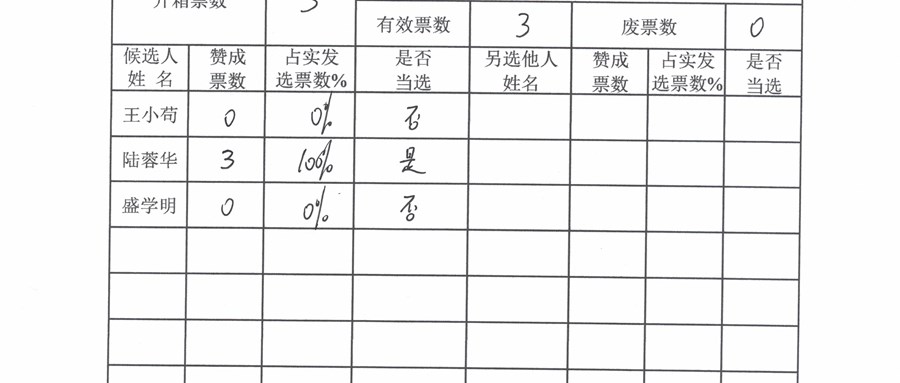 开箱票数 3
有效票数 3 废票数 0
候选人 赞成 占实发 是否 另选他人 赞成 占实发 是否
姓 名 票数 选票数% 当选 姓名 票数 选票数% 当选
王小苟 0 0% 否
陆蓉华 3 100% 是
盛学明 0 0% 否